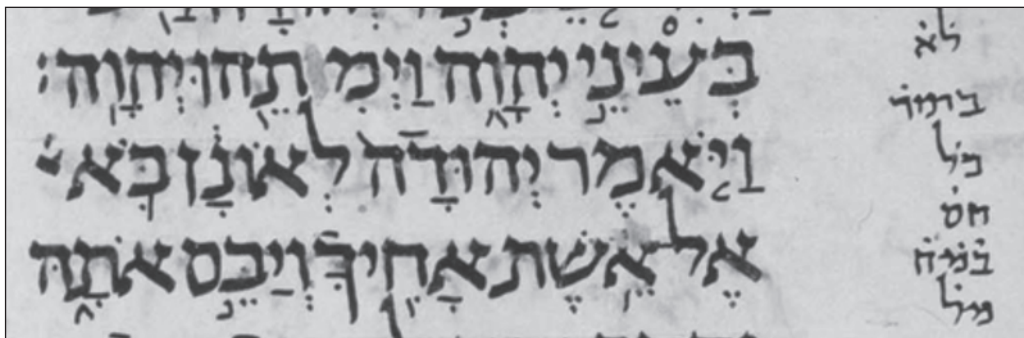 בְּעֵינֵ֣י יְהוָ֑ה וַיְמִתֵ֖הוּ יְהוָֽה׃
וַיֹּ֤אמֶר יְהוּדָה֙ לְאוֹנָ֔ן בֹּ֛א
אֶל אֵ֥שֶׁת אָחִ֖יךָ וְיַבֵּ֣ם אֹתָ֑הּ
לא
כל
חס